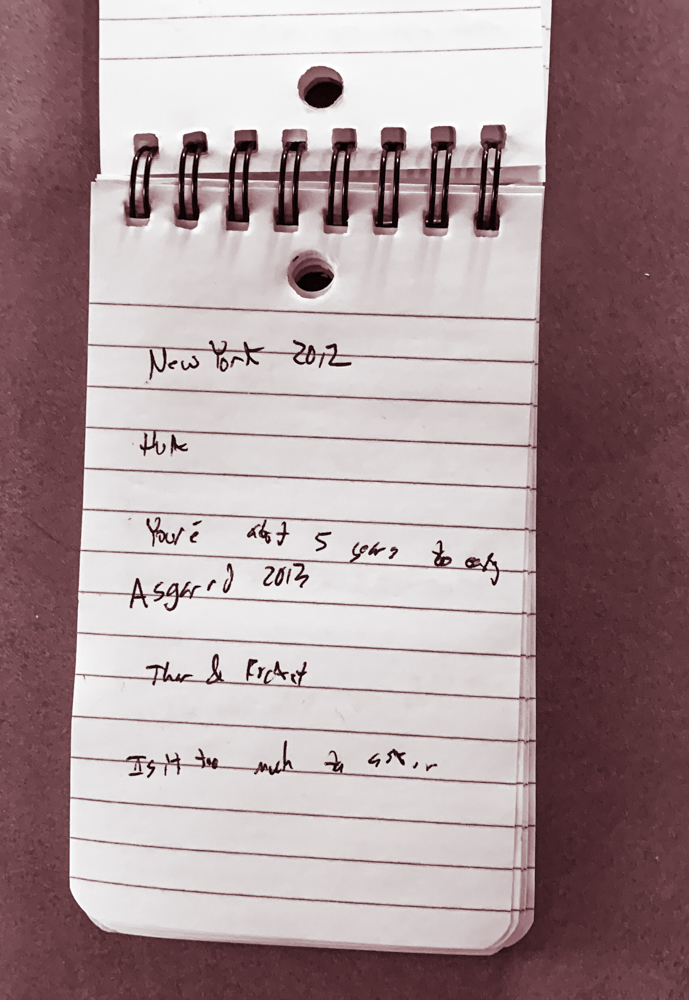 New York 2012
Hulk
You're about 5 years to early
Asgard 2013
Thor & Rocket
Is it too much to ask